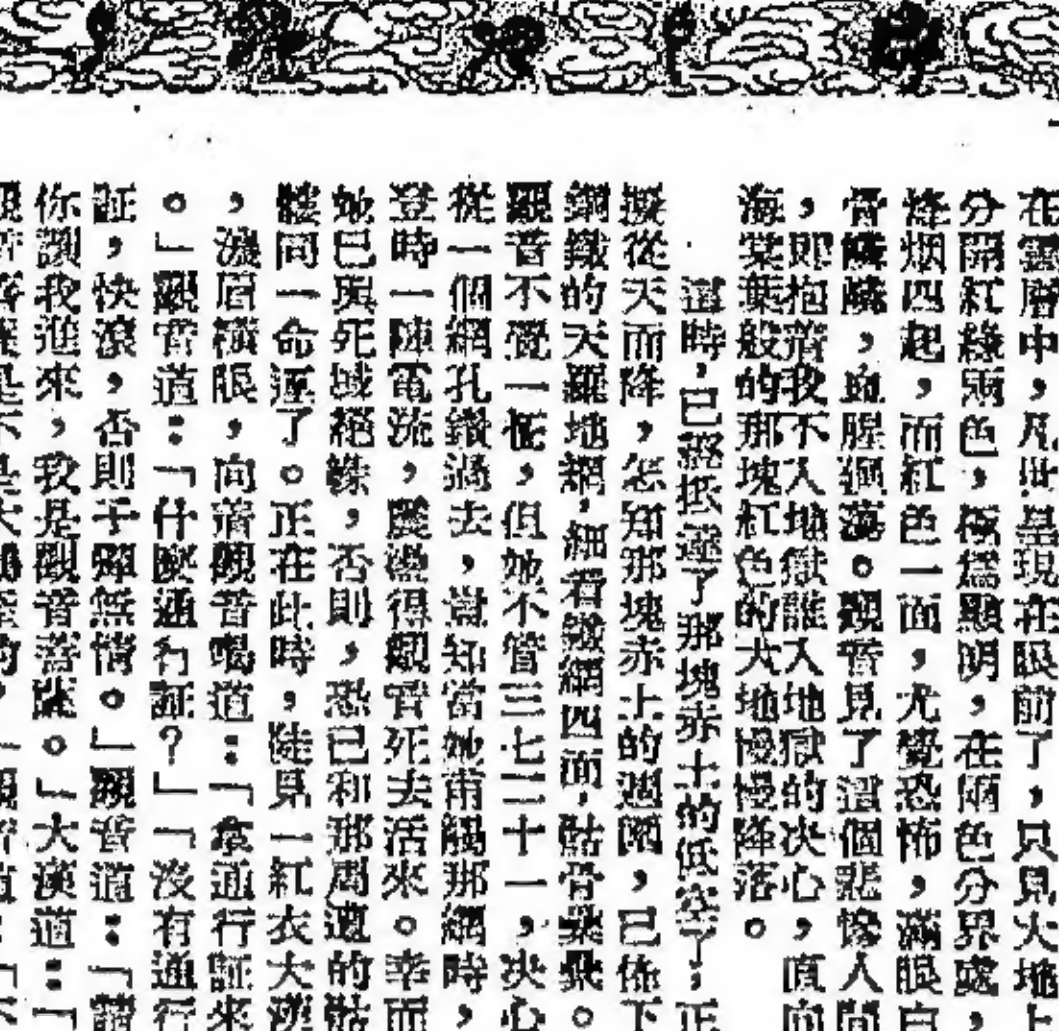 在雲層中，凡世呈現在眼前了，只見大地上
分開紅綠兩色，極爲顯明，在兩色分界處，
烽烟四起，而紅色一面，尤覺恐怖，滿眼白
骨嶙嶙，血腥翻蕩。觀音見了這個悲慘人間
，卽抱着我不入地獄誰入地獄的决心，直向
海棠葉般的那塊紅色的大地慢慢降落。
這時，已經抵達了那塊赤土的低空了，正
擬從天而降，怎知那塊赤土的週圍，已佈下
鋼鐵的天羅地網，細看鐵網四面，骷骨纍纍。
觀音不覺一怔，但她不管三七二十一，决心
從一個網孔鑽過去，豈知當她甫觸那網時，
登時一陣電流，震盪得觀音死去活來。幸而
她已與死域絕緣，否則，恐已和那周遭的骷
髏同一命運了。正在此時，陡見一紅衣大漢
，濃眉橫眼，向着觀音喝道：「拿通行証來
。」觀音道：「什麽通行証？」「沒有通行
証，快滾，否則子彈無情。」觀音道：「請
你讓我進來，我是觀音菩薩。」大漢道：「